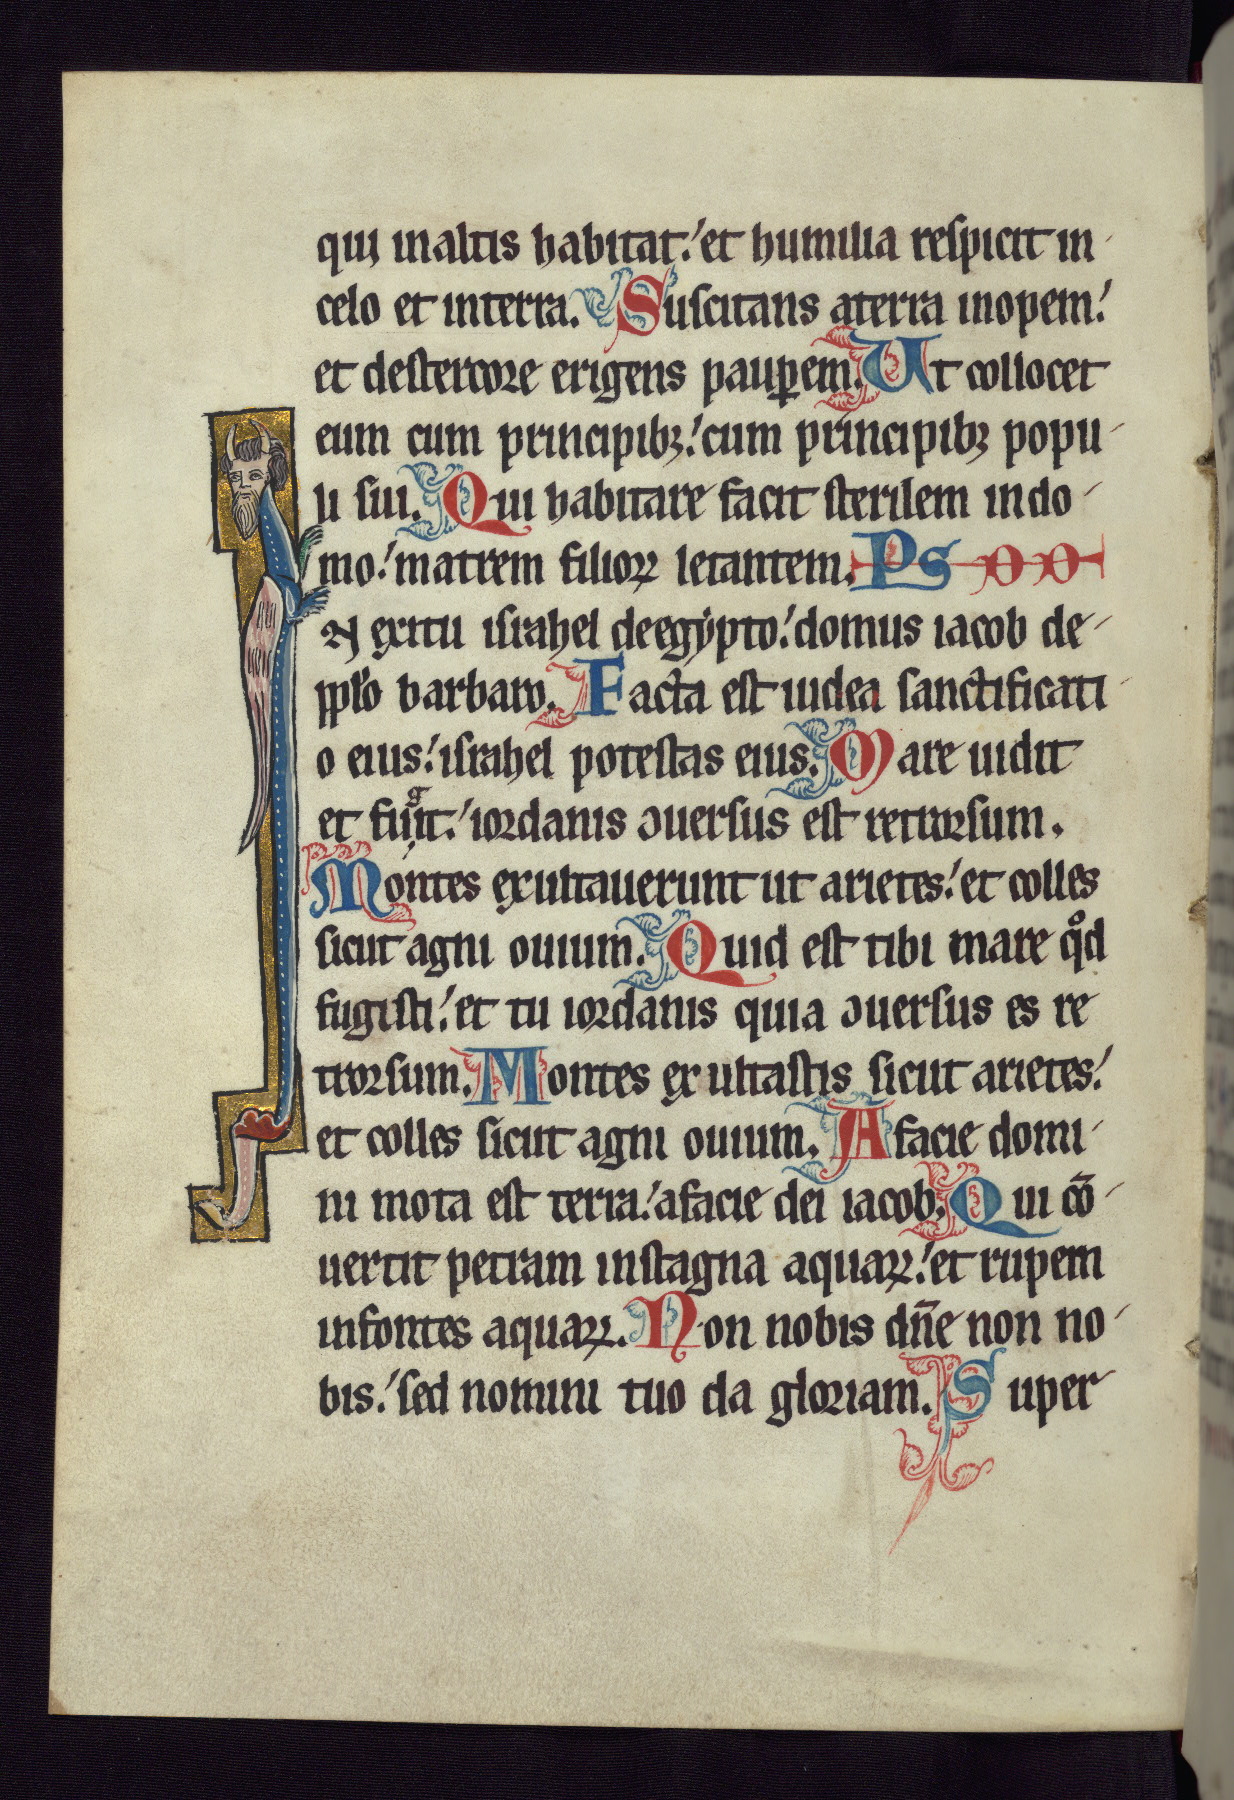 qui in altis habitat. et humilia respicit in
celo et in terra. Suscitans a terra inopem.
et de stercore erigens paup̱em. Ut collocet
eum cum principibꝫ. cum principibꝫ popu
li sui. Qui habitare facit sterilem in do
mo. matrem filioꝝ letantem. Ps
IN exitu israhel de egypto. domus iacob de
pplo barbaro. Facta est iudea sanctificati
o eius. israhel potestas eius. Mare uidit
et fugit. iordanis ɔuersus est retrorsum.
Montes exultauerunt ut arietes. et colles
sicut agni ouium. Quid est tibi mare qd
fugisti. et tu iordanis quia ɔuersus es re
trorsum. Montes exultastis sicut arietes.
et colles sicut agni ouium. A facie domi
ni mota est terra. a facie dei iacob. Qui cō
uertit petram in stagna aquaꝝ. et rupem
in fontes aquaꝝ. Non nobis dn̄e non no
bis. sed nomini tuo da gloriam. Super